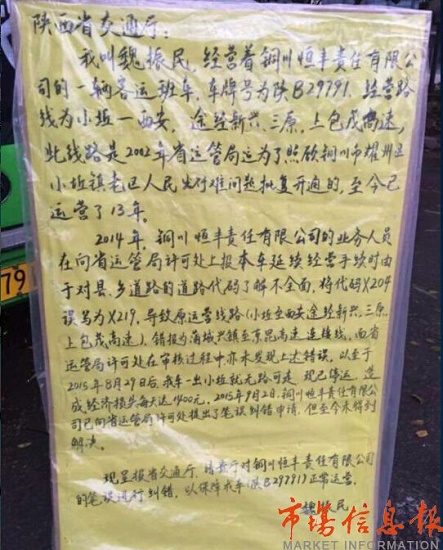 陕西省交通厅：
我叫魏振民，经营着铜川恒丰责任有限公
司的一辆客运班车，车牌号为陕B29791，经营路
线为小坵—西安，途经新兴、三原，上包茂高速，
此线路是2002年省运管局运为了照顾铜川市耀州区
小坵镇老区人民出行难问题批复开通的，至今已
运营了13年。
2014年，铜川恒丰责任有限公司的业务人员
在向省运管局许可处上报本车延续经营手续时由
于对县、乡道路的道路代码了解不全面，将代码X204
误写为X219，导致原运营线路（小坵至西安途经新兴、三原，
上包茂高速），错报为蒲城兴镇至京昆高速连接线，而省
运管局许可处在审核过程中亦未发现上述错误，以至于
2015年8月29日后，我车一出小坵就无路可走，现已停运，造
成经济损失每天达1400元，2015年9月2日，铜川恒丰责任有限公
司已向省运管局许可处提出了笔误纠错申请，但至今未得到
解决。
现呈报省交通厅，请贵厅对铜川恒丰责任有限公司
的笔误进行纠错，以保障我车（陕B29791）正常运营。
魏振民
79
市场信息报
MARKET INFORMATION